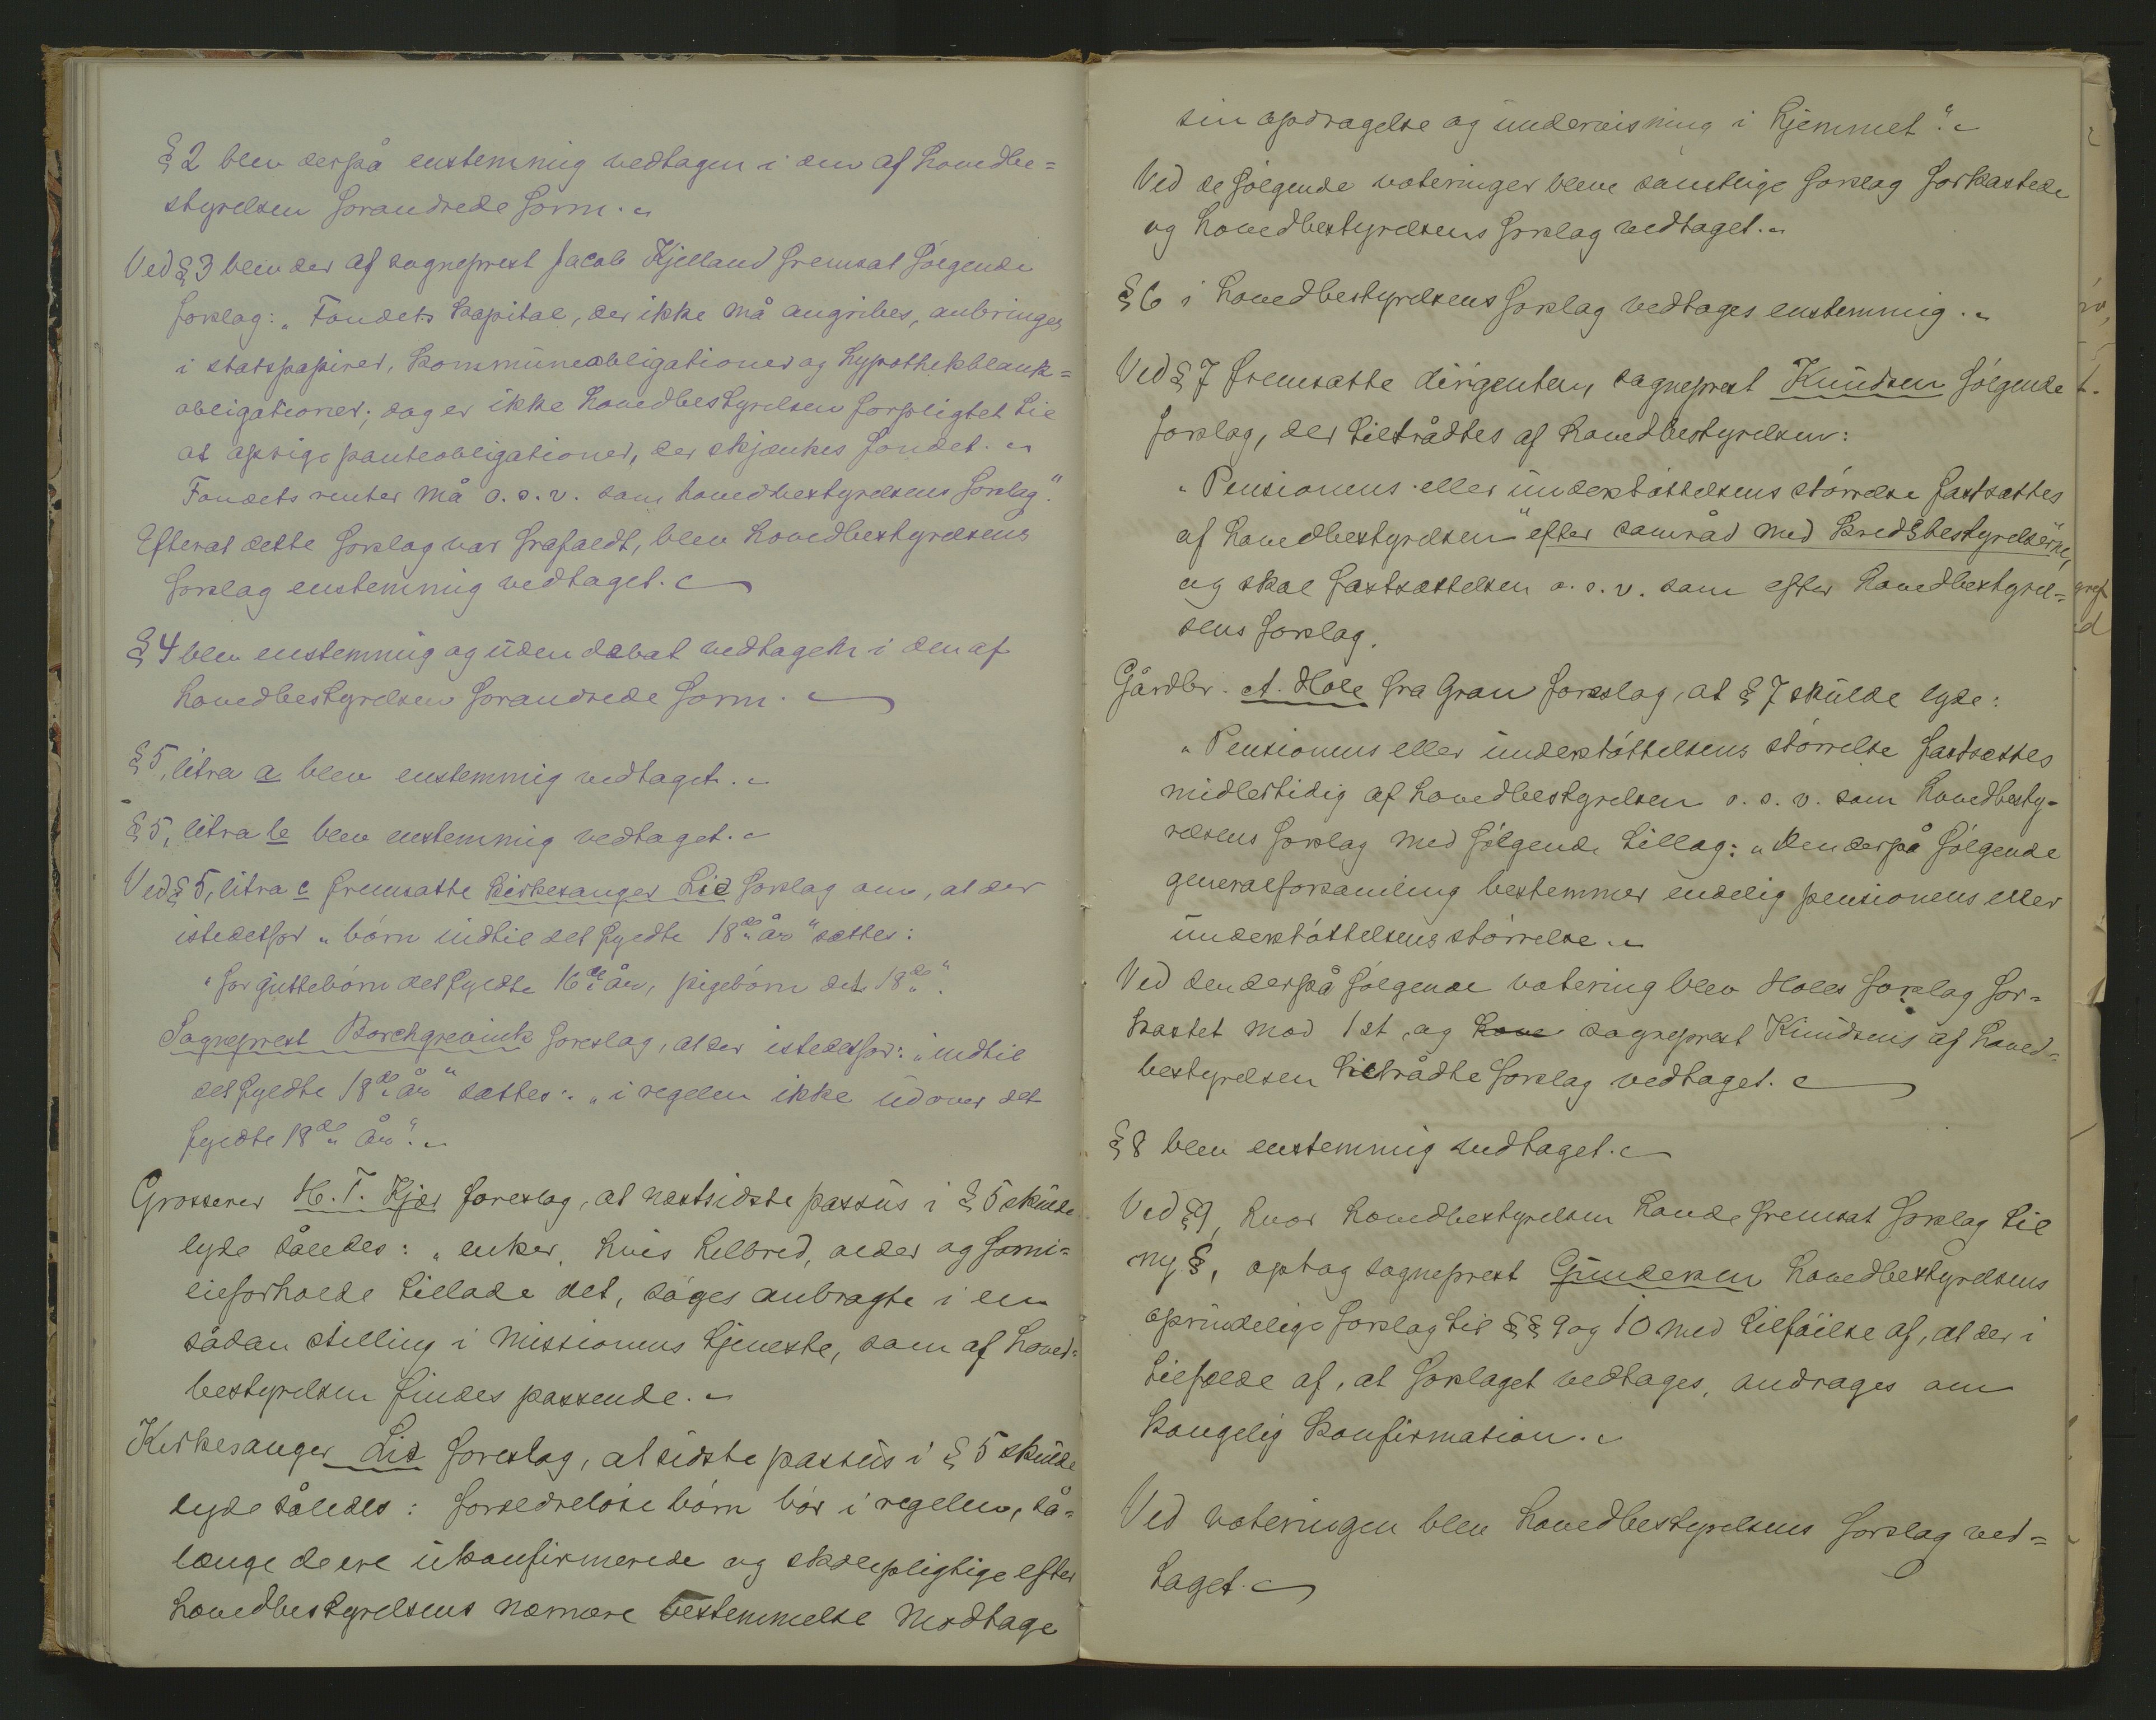 § 2 blev derpå enstemmig vedtagen i den af hovedbe=
styrelsen forandrede form.
Ved § 3 blev der af sogneprest Jacob Kjelland fremsat følgende
forslag: „Fondets kapital, der ikke må angribes, anbringes
i statspapirer, kommuneobligationer og hypothekbank=
obligationer; dog er ikke hovedbestyrelsen forpligtet til
at opsige panteobligationer, der skjænkes fondet.
Fondets renter må o. s. v. som hovedbestyrelsens forslag".
Efterat dette forslag var frafaldt, blev hovedbestyrelsens
forslag enstemmig vedtaget.
§ 4 blev enstemmig og uden debat vedtagen i den af
hovedbestyrelsen forandrede form.
§ 5, litra a blev enstemmig vedtaget.
§ 5, litra b blev enstemmig vedtaget.
Ved § 5, litra c fremsatte kirkesanger Lid forslag om, at der
istedetfor „børn indtil det fyldte 18de år" sættes:
„for guttebørn det fyldte 16de år, pigebørn det 18de".
Sogneprest Borchgrevink foreslog, at der istedetfor: „indtil
det fyldte 18de år" sættes: „i regelen ikke udover det
fyldte 18de år".
Grosserer H. T. Kjær foreslog, at næstsidste passus i § 5 skulde
lyde således: „enker, hvis helbred, alder og fami=
lieforholde tillade det, søges anbragte i en
sådan stilling i missionens tjeneste, som af hoved=
bestyrelsen findes passende.
Kirkesanger Lid foreslog, at sidste passus i § 5 skulde
lyde således: forældreløse børn bør i regelen, så=
længe de ere ukonfirmerede og skolepligtige efter
hovedbestyrelsens nærmere bestemmelse modtage
sin opdragelse og undervisning i hjemmet".
Ved de følgende voteringer bleve samtlige forslag forkastede
og hovedbestyrelsens forslag vedtaget.
§ 6 i hovedbestyrelsens forslag vedtages enstemmig.
Ved § 7 fremsatte dirigenten, sogneprest Knudsen følgende
forslag, der tiltrådtes af hovedbestyrelsen:
„Pensionens eller understøttelsens størrelse fastsættes
af hovedbestyrelsen "efter samråd med kredsbestyrelserne,"
og skal fastsættelsen o. s. v. som efter hovedbestyrel=
sens forslag.
Gårdbr. A. Hole fra Gran foreslog, at § 7 skulde lyde:
„Pensionens eller understøttelsens størrelse fastsættes
midlertidig af hovedbestyrelsen o. s. v. som hovedbesty=
relsens forslag med følgende tillæg: „Den derpå følgende
generalforsamling bestemmer endelig pensionens eller
understøttelsens størrelse.
Ved den derpå følgende votering blev Holes forslag for=
kastet mod 1 st. og hove sogneprest Knudsens af hoved=
bestyrelsen tiltrådte forslag vedtaget.
§ 8 blev enstemmig vedtaget.
Ved § 9, hvor hovedbestyrelsen havde fremsat forslag til
ny §, optog sogneprest Gundersen hovedbestyrelsens
oprindelige forslag til §§ 9 og 10 med tilføielse af, at der i
tilfælde af, at forslaget vedtages, andrages om
kongelig konfirmation.
Ved voteringen blev hovedbestyrelsens forslag ved=
taget.